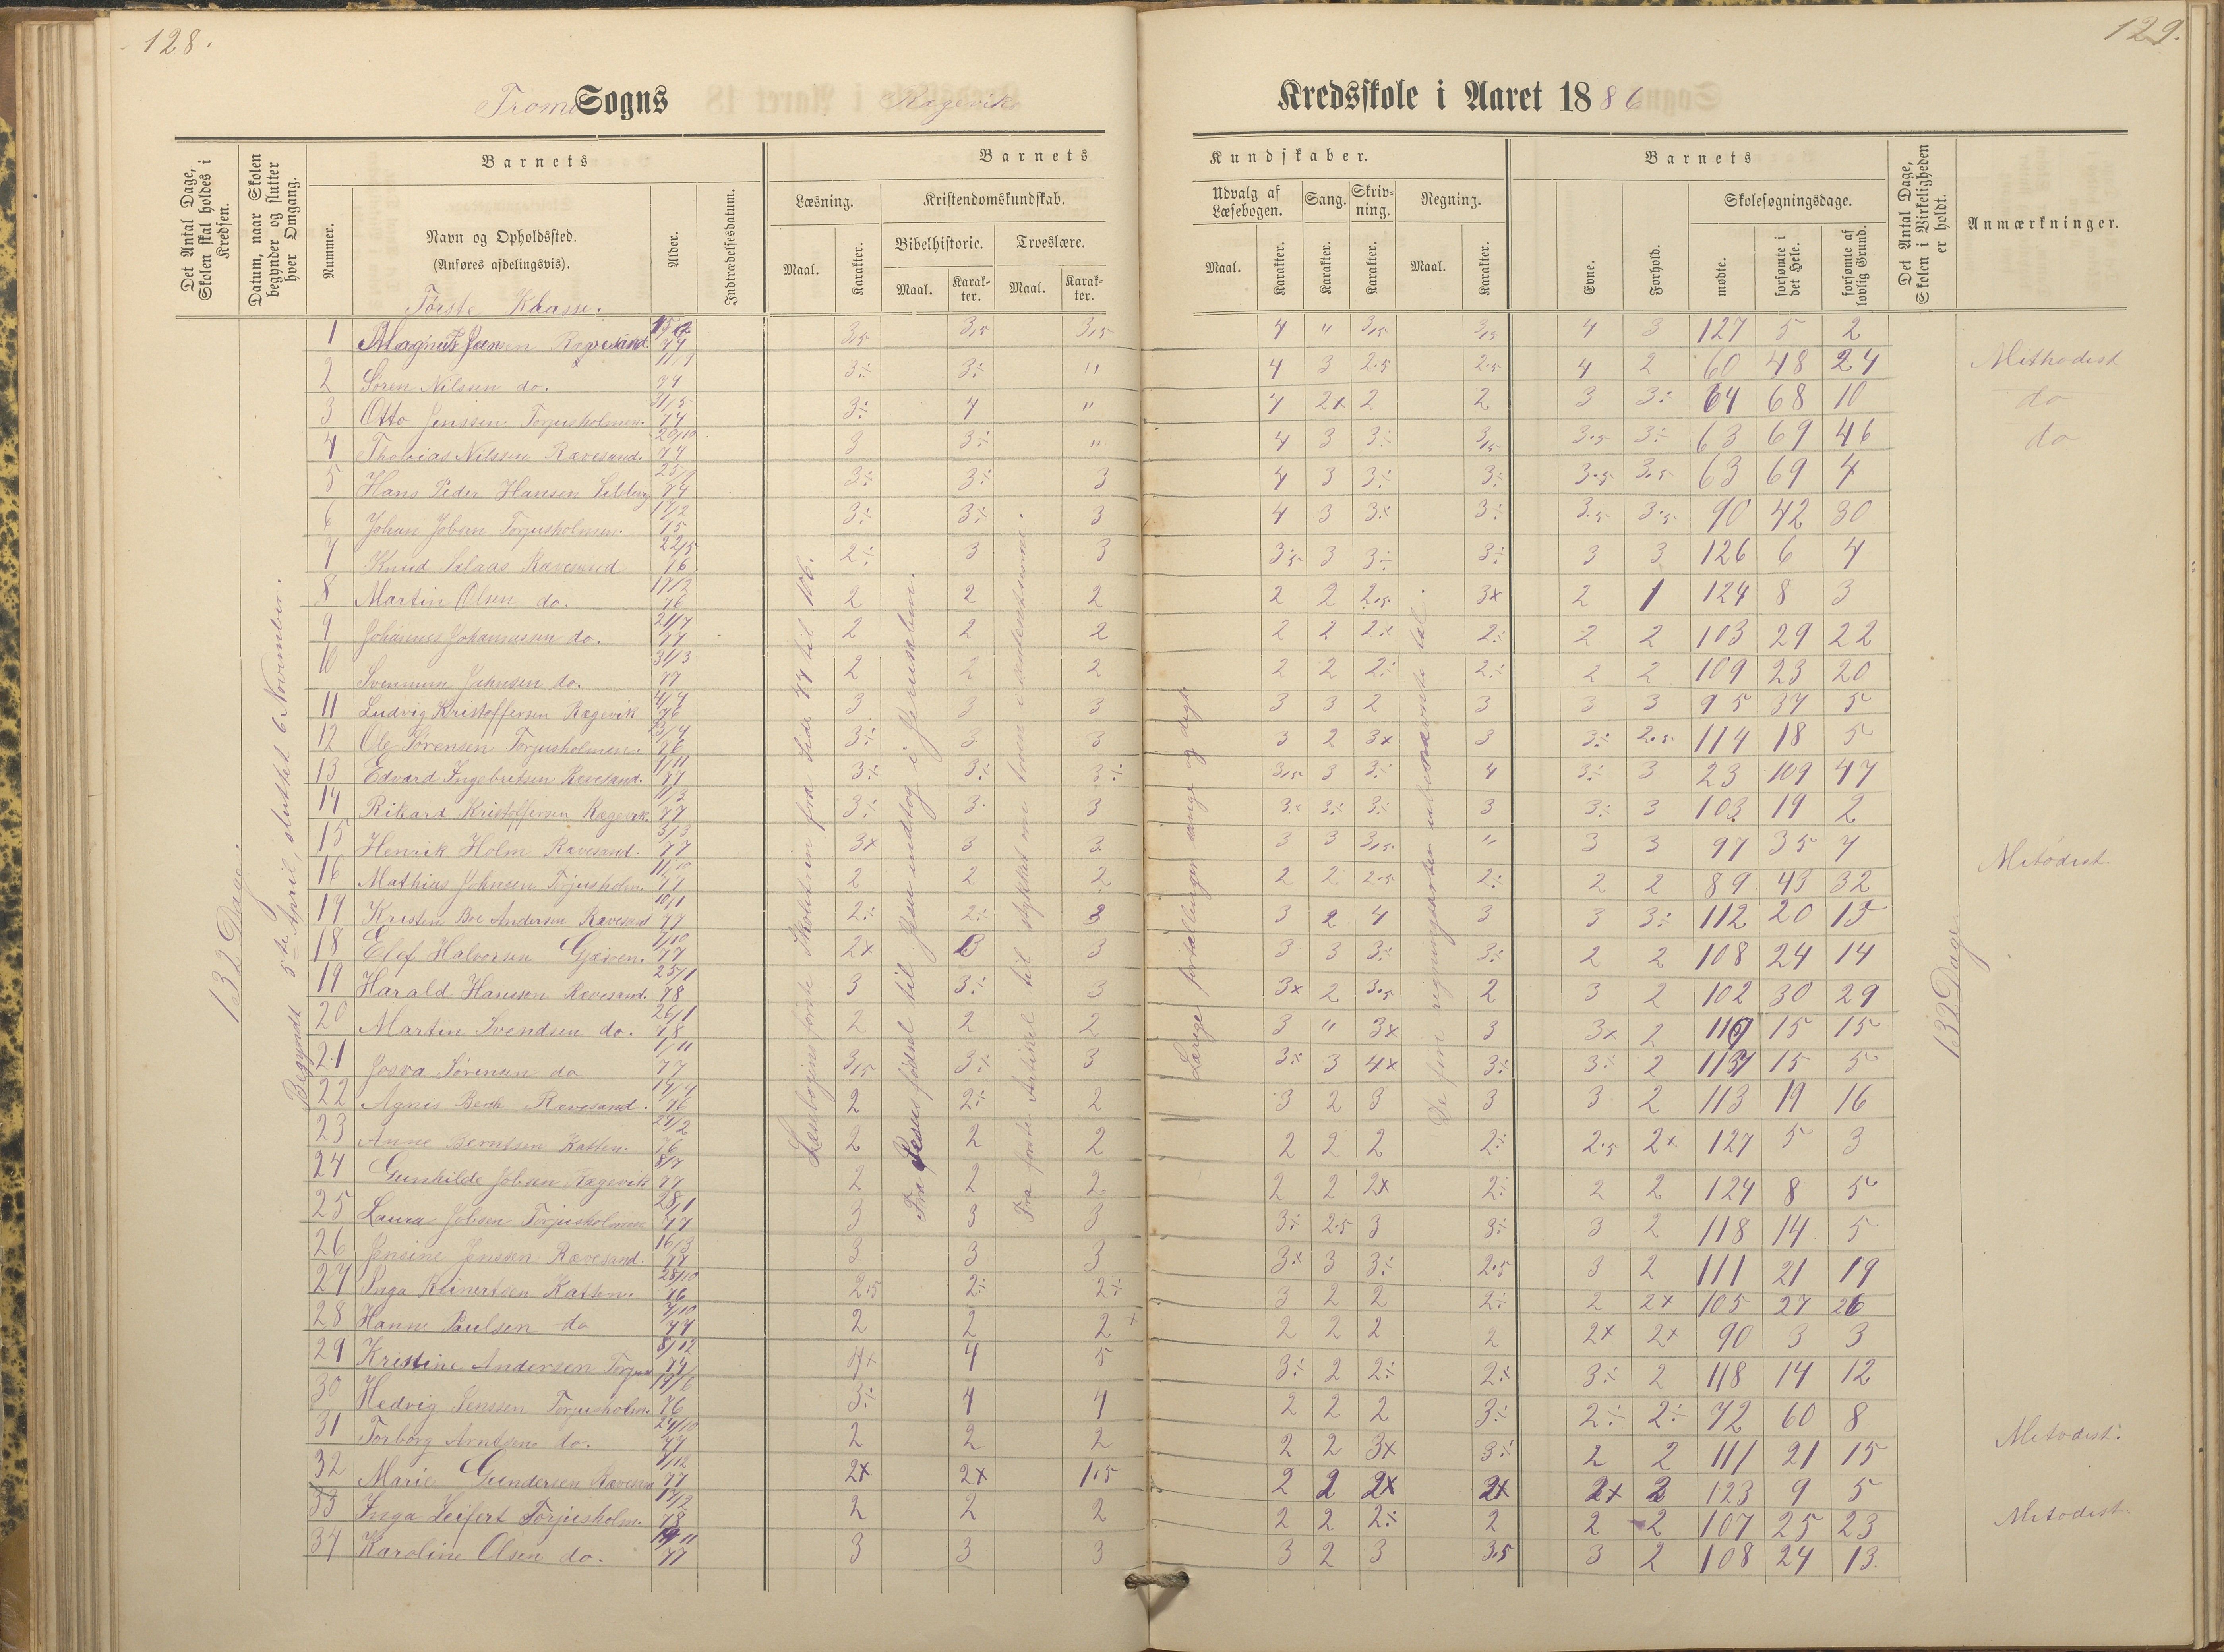 128.
129.
Tromø Sogns Rægevik Kredsskole i Aaret 1886
Det Antal Dage, Skolen skal holdes i Kredsen.
Datum, naar Skolen begynder og slutter hver Omgang.
Barnets
Nummer.
Navn og Opholdssted.
(Anføres afdelingsvis).
Alder.
Indtrædelsesdatum.
Barnets
Læsning.
Maal.
Karakter.
Kristendomskundskab.
Bibelhistorie.
Maal.
Karakter.
Troeslære.
Maal.
Karakter.
Kundskaber.
Udvalg af Læsebogen.
Maal.
Karakter.
Sang.
Karakter.
Skrivning.
Karakter.
Regning.
Maal.
Karakter.
Barnets
Evne.
Forhold.
Skolesøgningsdage.
mødte.
forsømte i det Hele.
forsømte af lovlig Grund.
Det Antal Dage, Skolen i Virkeligheden er holdt.
Anmærkninger.
Første Klasse.
132 Dage.
Begyndt 5te April, sluttet 6 November.
Læsebogens første Skoletrin fra Side 77 til 106.
Fra Jesu fødsel til Jesu indtog i Jerusalem.
Fra første Artikel til
Længe fortællinger sange og digte
De fire regningsarter ubenævnte tal.
132 Dage
1 Magnus Jensen Rævesand. 77 3,5 3,5 3,5 4 " 3,5 3,5 4 3 127 5 2
2 Søren Nilssen do. 74 3÷ 3÷ " 4 3 2.5 2.5 4 2 60 48 24 Methodist
3 Otto Jenssen Torjusholmen. 31/5 74 3÷ 4 " 4 2x 2 2 3 3÷ 64 68 10 do
4 Thobias Nilssen Rævesand. 20/10 74 3 3÷ " 4 3 3÷ 3,5 3.5 3÷ 63 69 46 do
5 Hans Peder Hansen 74 3÷ 3÷ 3 4 3 3÷ 3÷ 3.5 3.5 63 69 4
6 Johan Jobsen Torjusholmen. 17/2 75 3÷ 3÷ 3 4 3 3÷ 3÷ 3.5 3.5 90 42 30
7 Knud Salaas Rævesand 22/5 76 2÷ 3 3 3.5 3 3÷ 3÷ 3 3 126 6 4
8 Martin Olsen do. 17/3 76 2 2 2 2 2 2.5 3x 2 1 124 8 3
9 Johannes Johannessen do. 21/7 77 2 2 2 2 2 2÷ 2÷ 2 2 103 29 22
10 Svennum Jahnsen do. 31/3 77 2 2 2 2 2 2÷ 2÷ 2 2 109 23 20
11 Ludvig Kristoffersen Rægevik 4/4 76 3 3 3 3 3 2 3 3 3 95 37 5
12 Ole Sørensen Torjusholmen. 23/4 76 3÷ 3 3 3 2 3x 3 3÷ 2.5 114 18 5
13 Edvard Ingebretsen Rævesand. 7/11 77 3÷ 3÷ 3÷ 3,5 3 3÷ 4 3÷ 3 23 109 47
14 Rikard Kristoffersen Rægevik. 11/3 77 3÷ 3. 3 3÷ 3÷ 3÷ 3 3÷ 3 103 19 2
15 Henrik Holm Rævesand. 3/3 77 3x 3 3 3 3 3,5 " 3 3 97 35 7 Metodist.
16 Mathias Johnsen Torjusholm. 77 2 2 2 2 2 2.5 2÷ 2 2 89 43 32
17 Kristen Boe Andersen Rævesand 10/1 77 2÷ 2÷ 3 3 2 4 3 3 3÷ 112 20 15
18 Elef Halvorsen Gjæven. 7/10 77 2x 3 3 3 3 3÷ 3÷ 2 2 108 24 14
19 Harald Hansen Rævesand. 25/1 78 3 3÷ 3 3x 2 3.5 2 3 2 102 30 29
20 Martin Svendsen do. 26/1 78 2 2 2 3 " 3x 3 3x 2 117 15 15
21 Josva Sørensen do 1/11 77 3,5 3÷ 3 3÷ 3 4x 3÷ 3÷ 2 117 15 5
22 Agnes Bech Rævesand. 76 2 2÷ 2 3 2 3 3 3 2 113 19 16
23 Anne Berntsen Katten. 24/2 76 2 2 2 2 2 2 2÷ 2.5 2x 127 5 3
24 Gunhilde Jobsen Rægevik 8/7 77 2 2 2 2 2 2x 2÷ 2 2 124 8 5
25 Laura Jobsen Torjusholmen 28/1 77 3 3 3 3÷ 2.5 3 3÷ 3 2 118 14 5
26 Jensine Jenssen Rævesand. 16/3 77 3 3 3 3x 3 3÷ 2.5 3 2 111 21 19
27 Inga Reinertsen Katten. 28/10 76 2,5 2÷ 2÷ 3 2 2 2÷ 2 2x 105 27 26
28 Hanne Paulsen do 7/10 77 2 2 2x 2 2 2 2 2x 2x 90 3 3
29 Kristine Andersen Torjus 8/12 74 4x 4 5 3÷ 2 2÷ 2÷ 3÷ 2 118 14 12
30 Hedvig Jenssen Torjusholm. 76 3÷ 4 4 2 2 2 3÷ 2÷ 2÷ 72 60 8
31 Torborg Arntsen do. 24/10 77 2 2 2 2 2 3x 3÷ 2 2 111 21 15 Metodist.
32 Marie Gundersen Rævesand 7/12 77 2x 2x 1.5 2 2 2x 2x 2x 2 123 9 5
33 Inga Leifert Torjusholm. 17/2 78 2 2 2 2 2 2÷ 2 2 2 107 25 23 Metodist.
34 Karoline Olsen do. 77 3 3 3 3 2 3 3.5 3 2 108 24 13.